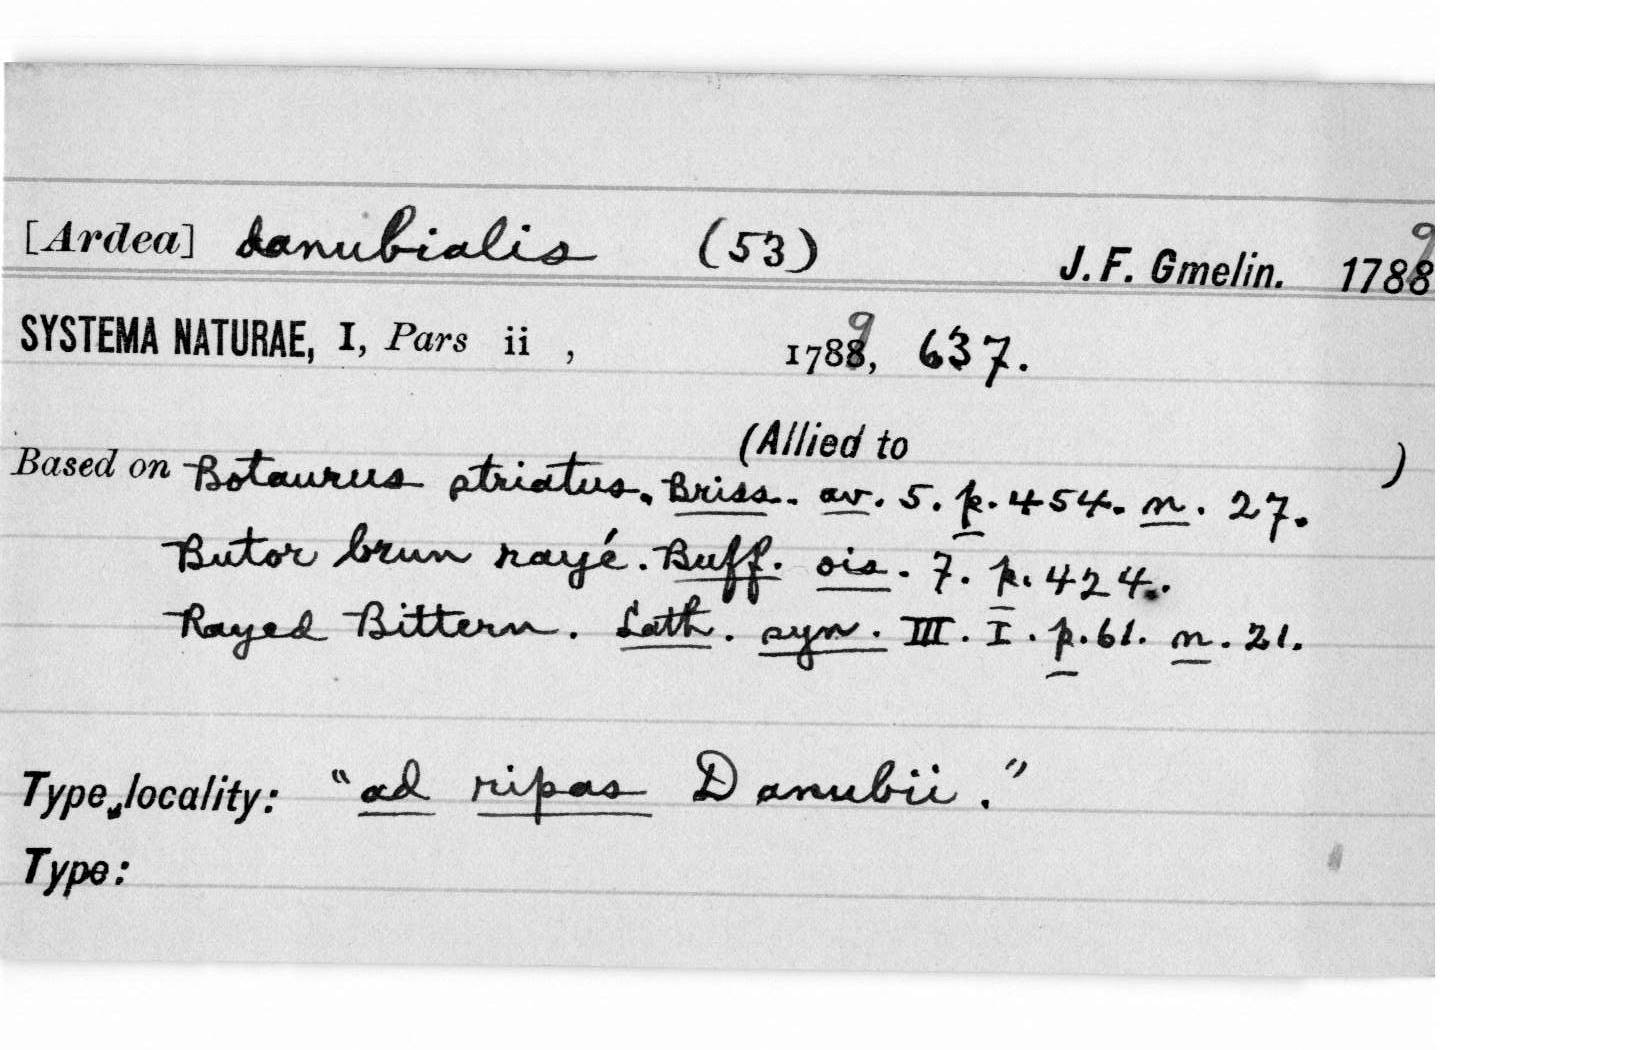 [Ardea] danubialis (53) J. F. Gmelin. 1788 9
SYSTEMA NATURAE, I, Pars ii , 1788 9, 637.
(Allied to )
Based on Botaurus striatus. Briss. av. 5. p. 454. n. 27.
Butor brun rayé. Buff. ois. 7. p. 424.
Rayed Bittern. Lath. syn. III. I. p. 61. n. 21.
Type locality: "ad ripas Danubii."
Type: